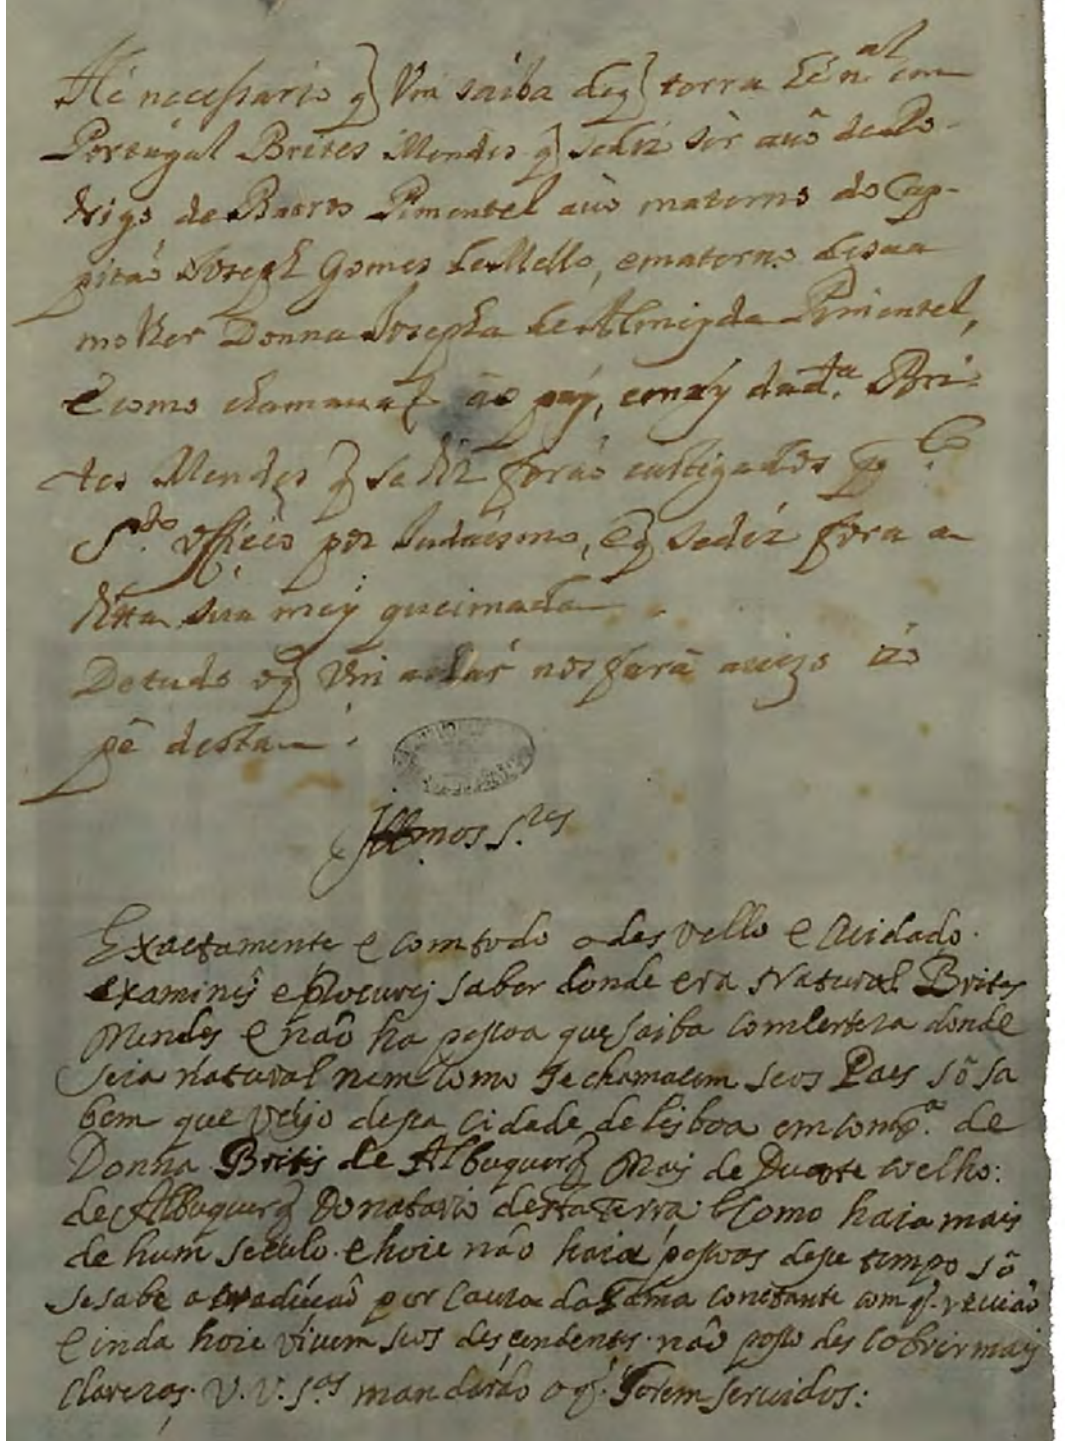 Hé necessario q̃ Vm saiba deq̃ terra hé n.al em
Portugal Brites Mendes q̃ sediz ser auô de Ro-
drigo de Barros Pimentel auò materno do Cap-
pitaõ Joseph Gomes de Mello, ematerno desua
molher Donna Josepha de Almeyda Pimentel,
E como chamauaõ ao pay, emãy dad.ta Bri-
tes Mendes q̃ se diz foraõ castigados p.
S.to officio por Judaismo, Eq̃ sediz fora a
ditta sua mey queimada
Detudo oq̃ Vm achár nos fará auizo ao
pê desta
Illmos S.res
Exactamente e comtodo odesvello e Cuidado
examinej eprocurej saber donde era Natural Brites
Mendes e não ha pessoa que saiba comserteza donde
seia natural nem como se chamacem seos Paes só sa
bem que veijo dessa cidade de lisboa emcomp.a de
Donna Brites de Albuquerq̃ Maj de Duarte coelho
de Albuquerq̃ Donatario desta Terra Como haia mais
de hum seculo ehoie não haia pessoas desse tempo só
sesabe a tradiçaõ por cauza dafama constante com q̃ viuiaõ
e inda hoie vivem seos descendentes não posso des cobrir mais
clarezas. V. V. S.as mandaráõ o q̃ forem servidos: